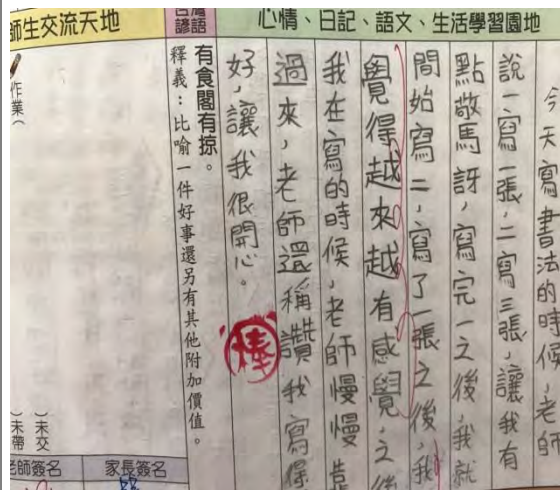 師生交流天地
心情、日記、語文、生活學習園地
今天寫書法的時候,老師
說一寫一張,二寫三張,讓我有
點敬馬訝,寫完一之後,我就
間始寫二,寫了一張之後,我
覺得越來越有感覺,之後
我在寫的時候,老師慢慢靠
過來,老師還稱讚我寫得
好,讓我很開心。
棒
諺語
有食閣有掠。
釋義:比喻一件好事還另有其他附加價值。
作業(
)未交
)未帶
老師簽名
家長簽名